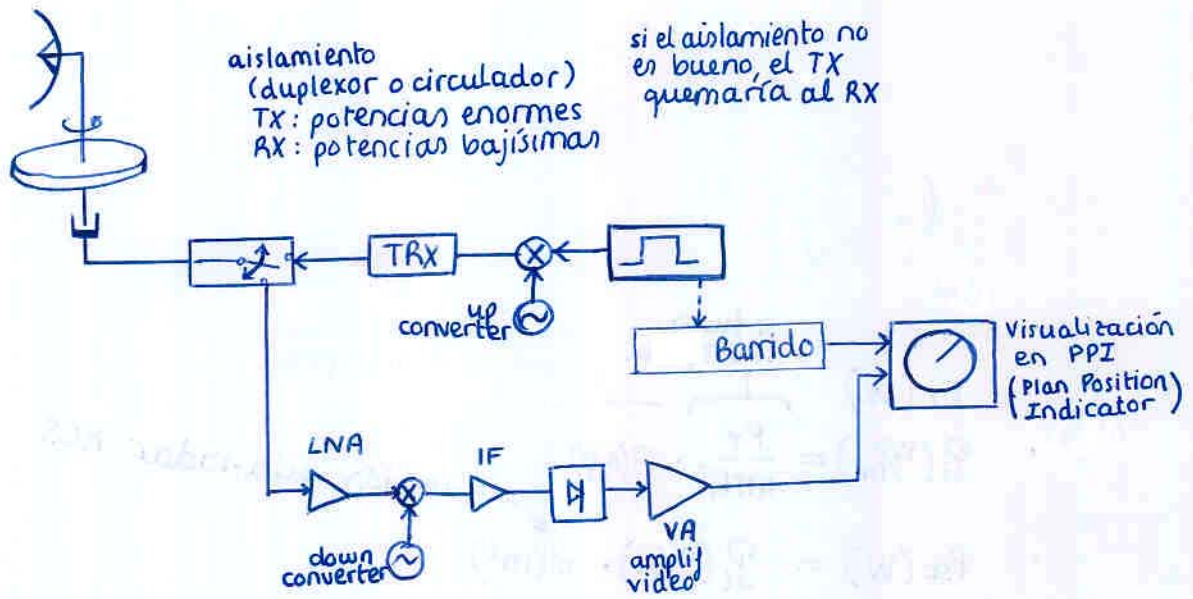 aislamiento
(duplexor o circulador)
TX: potencias enormes
RX: potencias bajísimas
si el aislamiento no
es bueno, el TX
quemaría al RX
TRX
up
converter
Barrido
Visualización
en PPI
(Plan Position
Indicator)
LNA
IF
down
converter
VA
amplif
video